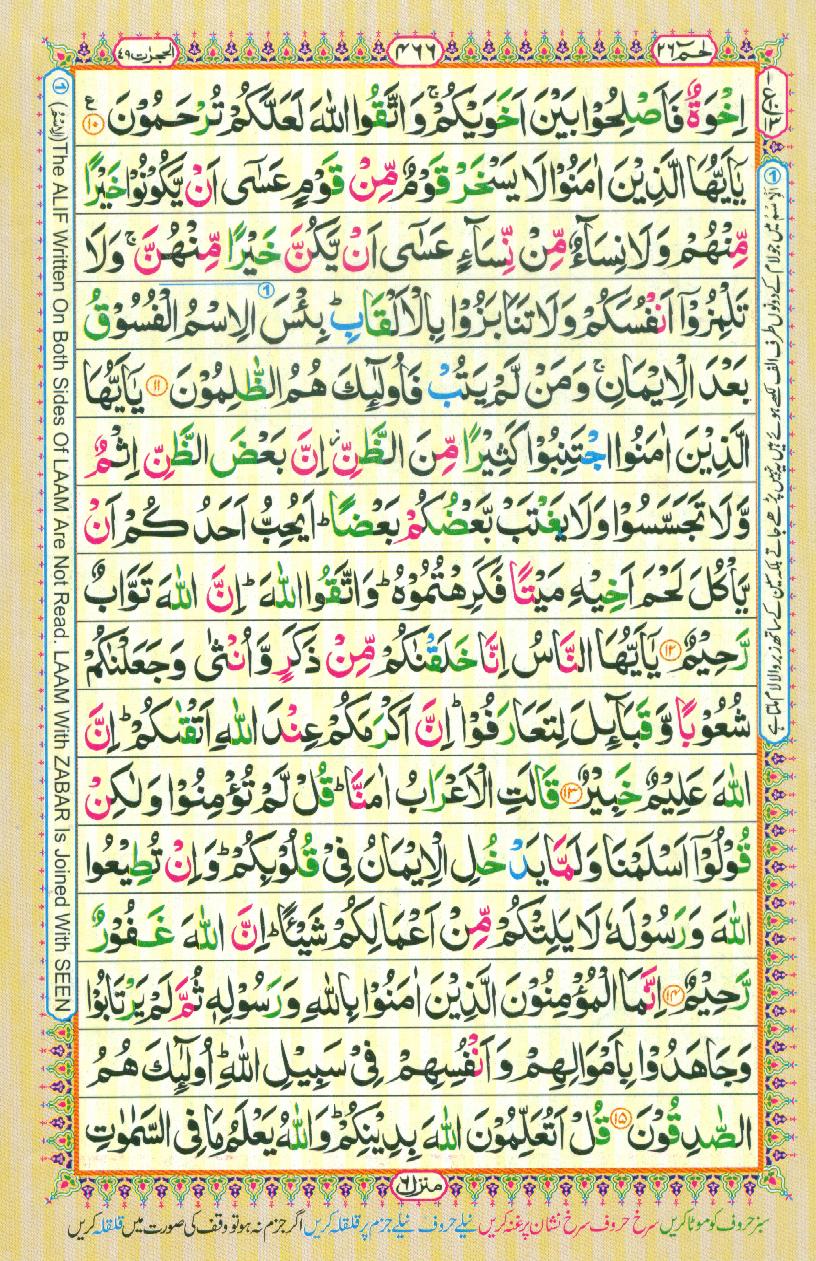 حٰمٓ ٢٦
٤٦٦
الحجرٰت ٤٩
اِخْوَةٌ فَاَصْلِحُوْا بَيْنَ اَخَوَيْكُمْ ۚ وَ اتَّقُوا اللّٰهَ لَعَلَّكُمْ تُرْحَمُوْنَ ۧ ١٠
يٰۤاَيُّهَا الَّذِيْنَ اٰمَنُوْا لَا يَسْخَرْ قَوْمٌ مِّنْ قَوْمٍ عَسٰۤى اَنْ يَّكُوْنُوْا خَيْرًا
مِّنْهُمْ وَ لَا نِسَآءٌ مِّنْ نِّسَآءٍ عَسٰۤى اَنْ يَّكُنَّ خَيْرًا مِّنْهُنَّ ۚ وَ لَا
تَلْمِزُوْۤا اَنْفُسَكُمْ وَ لَا تَنَابَزُوْا بِالْاَلْقَابِ ؕ بِئْسَ الِاسْمُ الْفُسُوْقُ
بَعْدَ الْاِيْمَانِ ۚ وَ مَنْ لَّمْ يَتُبْ فَاُولٰٓئِكَ هُمُ الظّٰلِمُوْنَ ١١ يٰۤاَيُّهَا
الَّذِيْنَ اٰمَنُوا اجْتَنِبُوْا كَثِيْرًا مِّنَ الظَّنِّ ؗ اِنَّ بَعْضَ الظَّنِّ اِثْمٌ
وَّ لَا تَجَسَّسُوْا وَ لَا يَغْتَبْ بَّعْضُكُمْ بَعْضًا ؕ اَيُحِبُّ اَحَدُكُمْ اَنْ
يَّاْكُلَ لَحْمَ اَخِيْهِ مَيْتًا فَكَرِهْتُمُوْهُ ؕ وَ اتَّقُوا اللّٰهَ ؕ اِنَّ اللّٰهَ تَوَّابٌ
رَّحِيْمٌ ١٢ يٰۤاَيُّهَا النَّاسُ اِنَّا خَلَقْنٰكُمْ مِّنْ ذَكَرٍ وَّ اُنْثٰى وَ جَعَلْنٰكُمْ
شُعُوْبًا وَّ قَبَآئِلَ لِتَعَارَفُوْا ؕ اِنَّ اَكْرَمَكُمْ عِنْدَ اللّٰهِ اَتْقٰىكُمْ ؕ اِنَّ
اللّٰهَ عَلِيْمٌ خَبِيْرٌ ١٣ قَالَتِ الْاَعْرَابُ اٰمَنَّا ؕ قُلْ لَّمْ تُؤْمِنُوْا وَ لٰكِنْ
قُوْلُوْۤا اَسْلَمْنَا وَ لَمَّا يَدْخُلِ الْاِيْمَانُ فِيْ قُلُوْبِكُمْ ؕ وَ اِنْ تُطِيْعُوا
اللّٰهَ وَ رَسُوْلَهٗ لَا يَلِتْكُمْ مِّنْ اَعْمَالِكُمْ شَيْـًٔا ؕ اِنَّ اللّٰهَ غَفُوْرٌ
رَّحِيْمٌ ١٤ اِنَّمَا الْمُؤْمِنُوْنَ الَّذِيْنَ اٰمَنُوْا بِاللّٰهِ وَ رَسُوْلِهٖ ثُمَّ لَمْ يَرْتَابُوْا
وَ جَاهَدُوْا بِاَمْوَالِهِمْ وَ اَنْفُسِهِمْ فِيْ سَبِيْلِ اللّٰهِ ؕ اُولٰٓئِكَ هُمُ
الصّٰدِقُوْنَ ١٥ قُلْ اَتُعَلِّمُوْنَ اللّٰهَ بِدِيْنِكُمْ ؕ وَ اللّٰهُ يَعْلَمُ مَا فِي السَّمٰوٰتِ
منزل ٦
سبز حروف کو موٹا کریں سرخ حروف سرخ نشان پر غنہ کریں نیلے حروف نیلے جزم پر قلقلہ کریں اگر جزم نہ ہو تو وقف کی صورت میں قلقلہ کریں
① (لِاسْمُ) The ALIF Written On Both Sides Of LAAM Are Not Read. LAAM With ZABAR Is Joined With SEEN
① الاسم میں جو لام کے دونوں طرف الف لکھے ہوئے ہیں یہ نہیں پڑھے جاتے بلکہ سین کے ساتھ زیر والا لام ملتا ہے